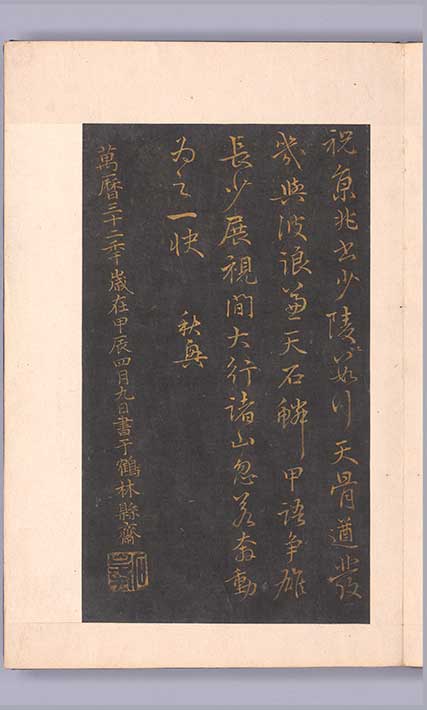 祝京兆書少陵天骨遒發
幾與波浪兼天石鱗甲語爭雄
長少展視間大行諸山忽若奔動
為之一快
秋興
萬曆三十二年歲在甲辰四月九日書于鶴林縣齋